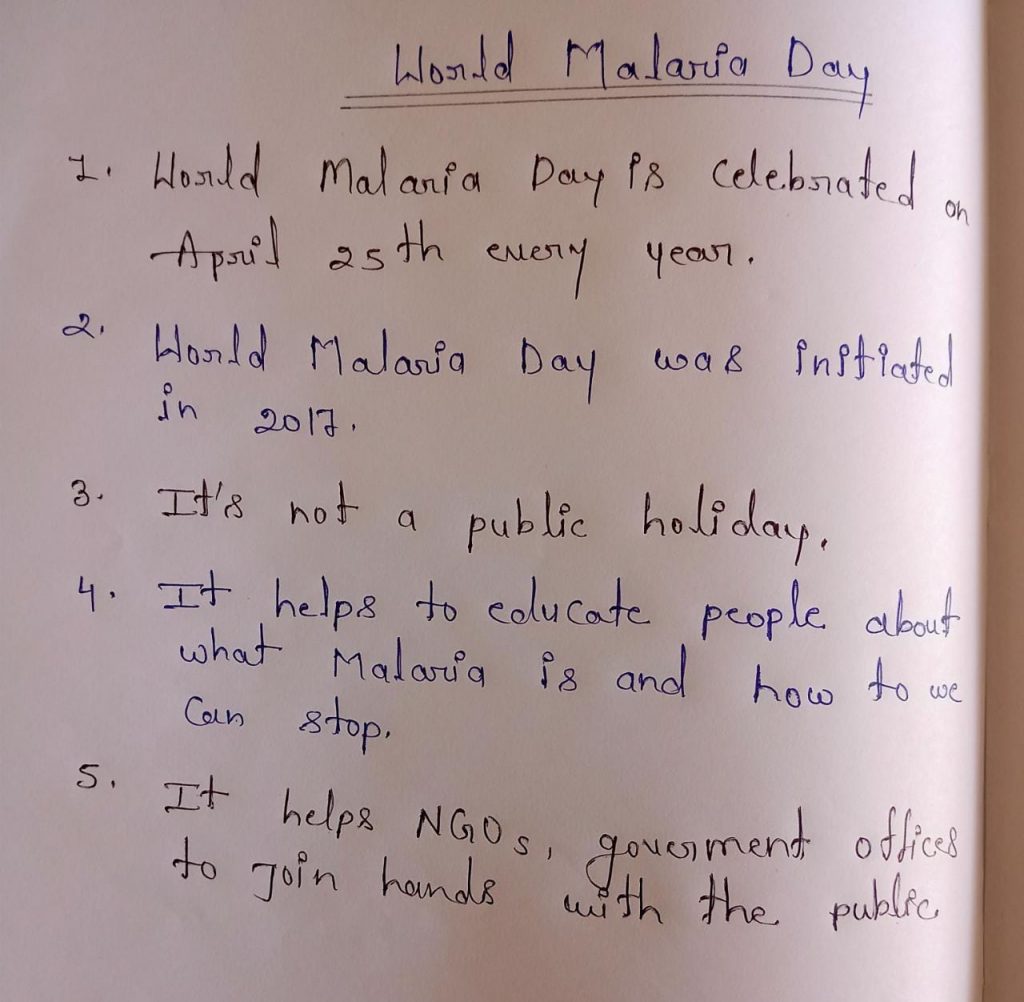 World Malaria Day
1. World Malaria Day is celebrated on
April 25th every year.
2. World Malaria Day was initiated
in 2017.
3. It's not a public holiday.
4. It helps to educate people about
what Malaria is and how to we
can stop.
5. It helps NGOs, goverment offices
to join hands with the public